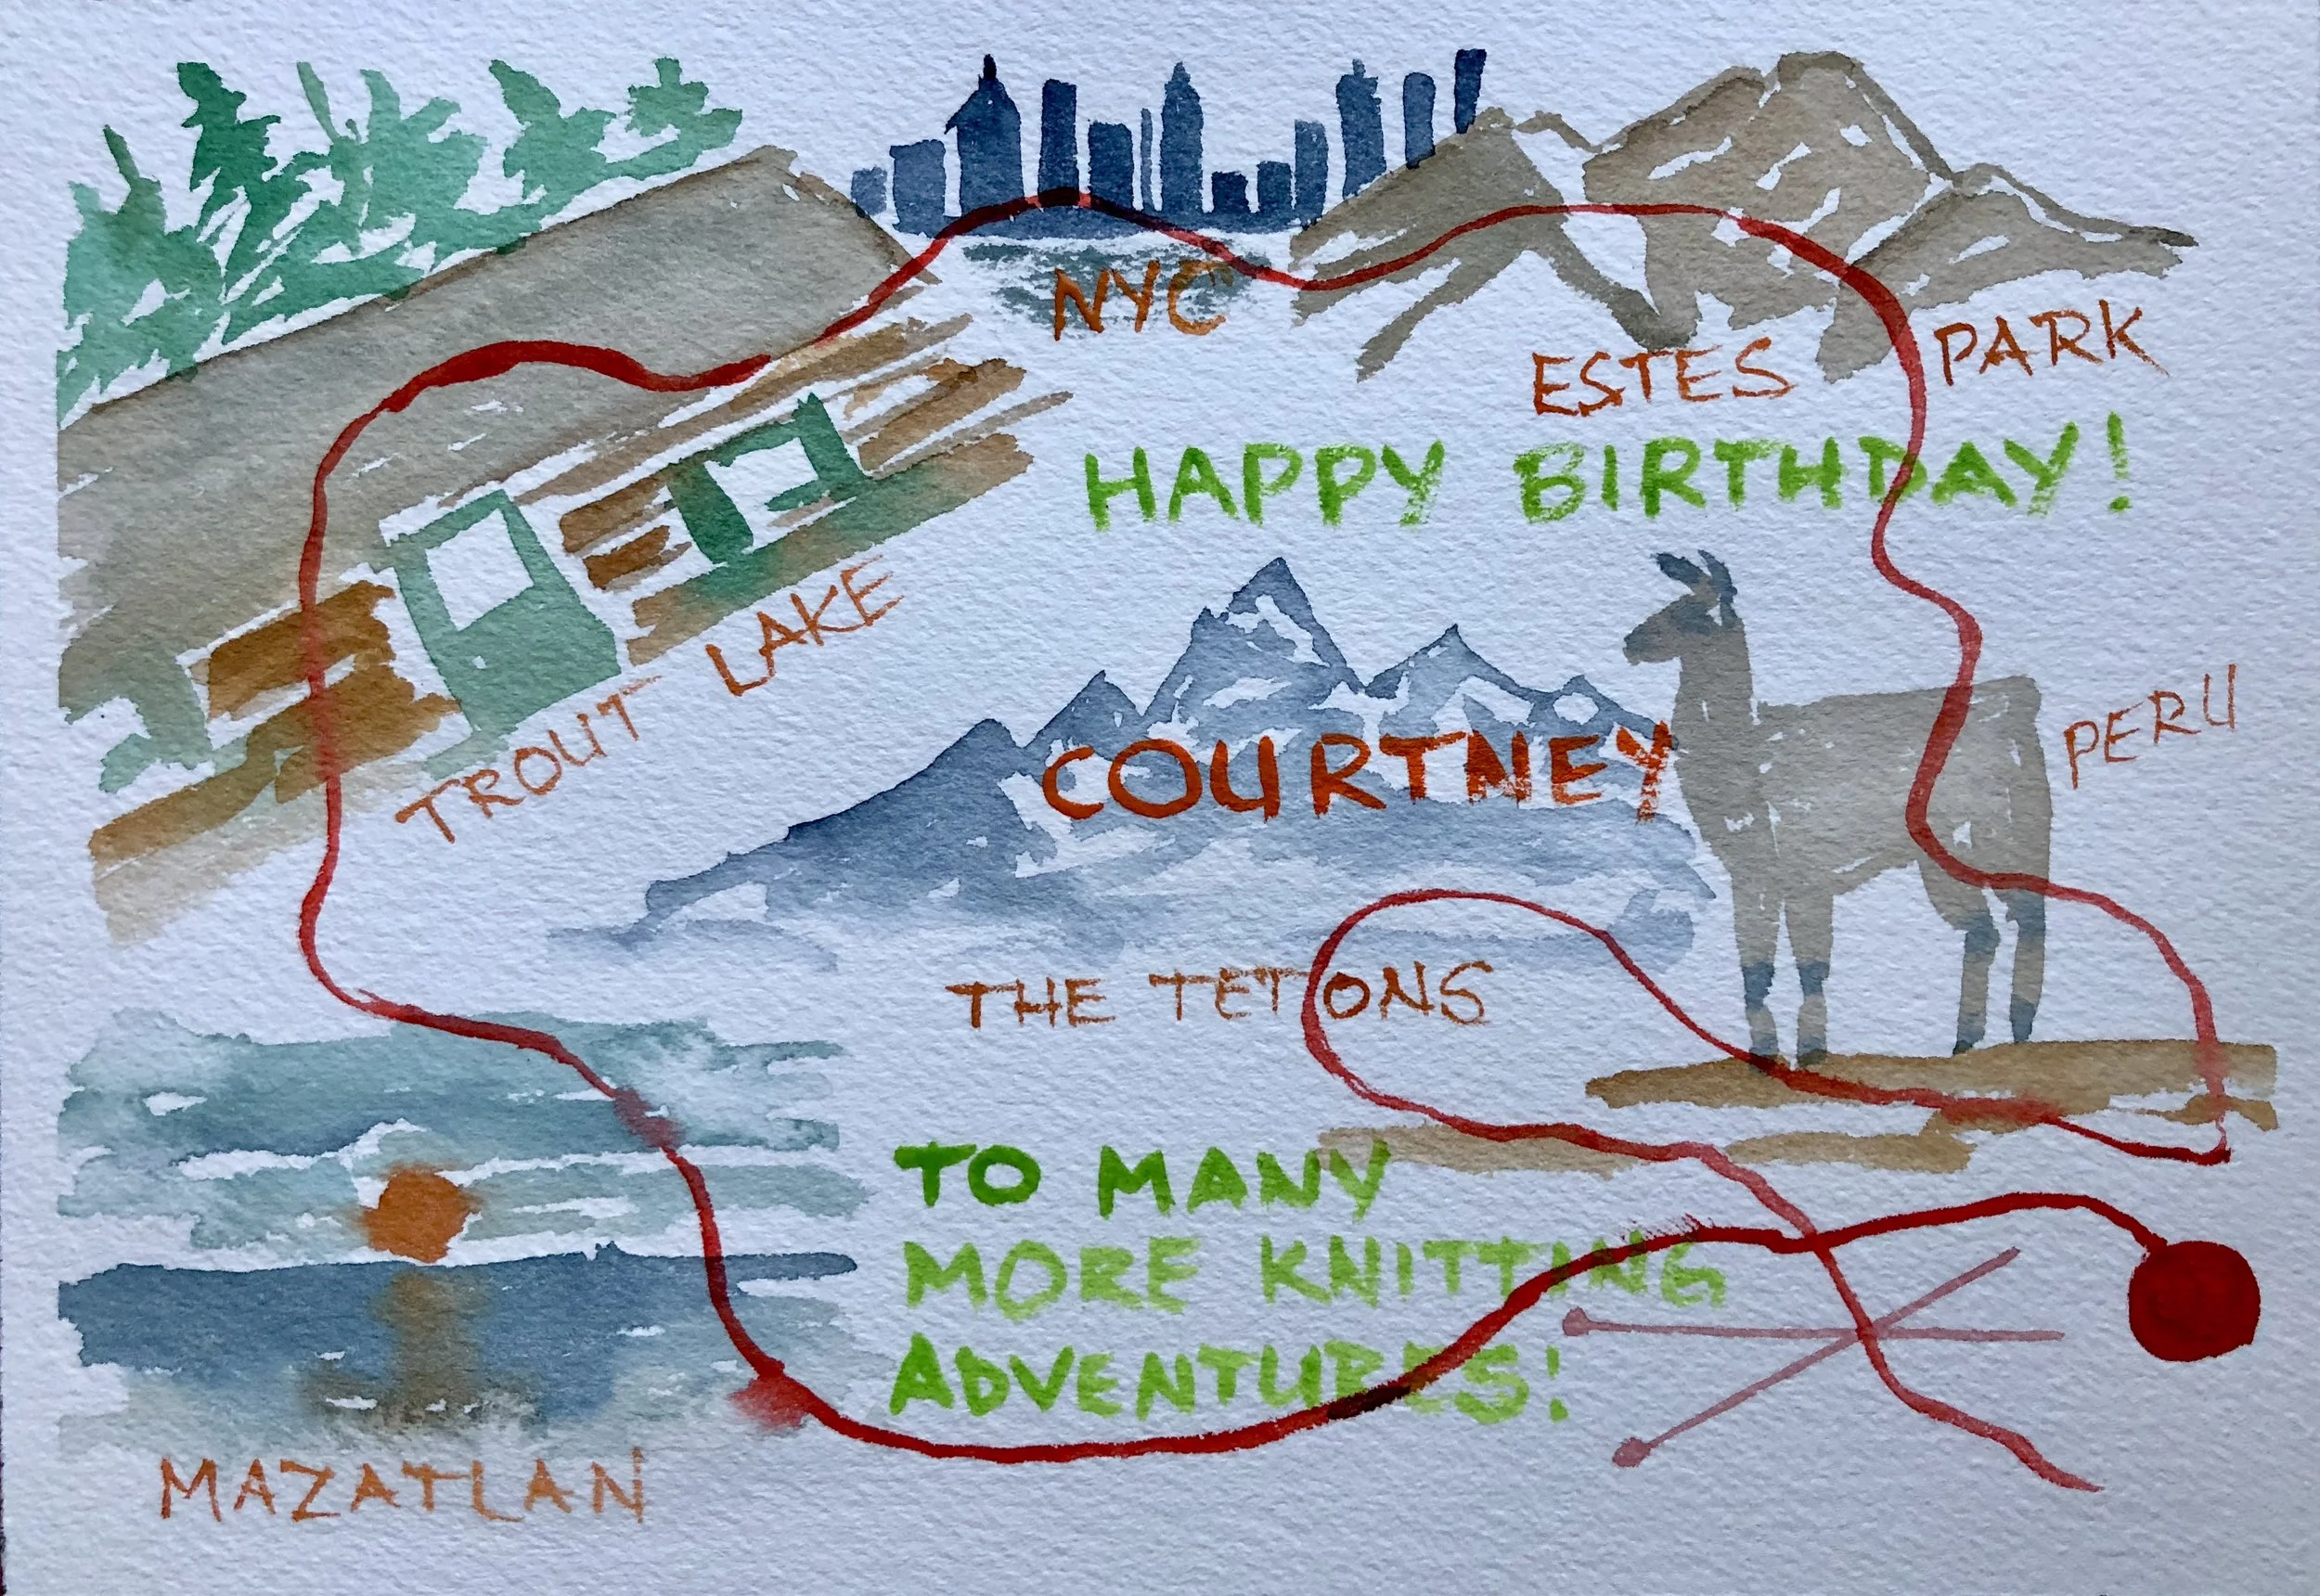 NYC
ESTES PARK
HAPPY BIRTHDAY!
TROUT LAKE
PERU
COURTNEY
THE TETONS
TO MANY
MORE KNITTING
ADVENTURES!
MAZATLAN